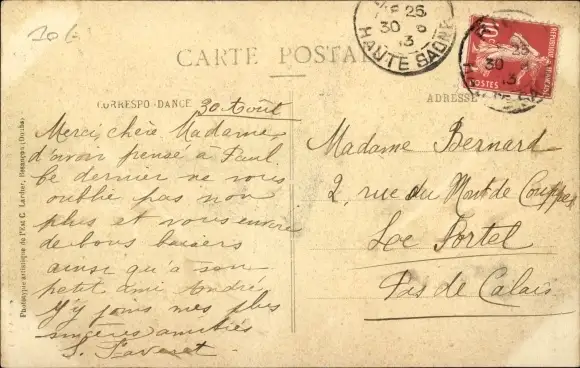 106
CARTE POSTALE
CORRESPONDANCE
ADRESSE
30 Août
Merci, chère Madame,
d'avoir pensé à Paul.
Ce dernier ne vous
oublie pas non
plus et vous envoie
de bons baisers
ainsi qu'à son
petit ami André
J'y joins mes plus
sincères amitiés
S. Faveret
Madame Bernard
2, rue du Mont de Couppes
Le Portel
Pas de Calais
25
30 8
13
HAUTE SAONE
10c
REPUBLIQUE FRANÇAISE
POSTES
25
30
13
Photogr. artistique de l'Est C. Lardier, Besançon (Doubs)